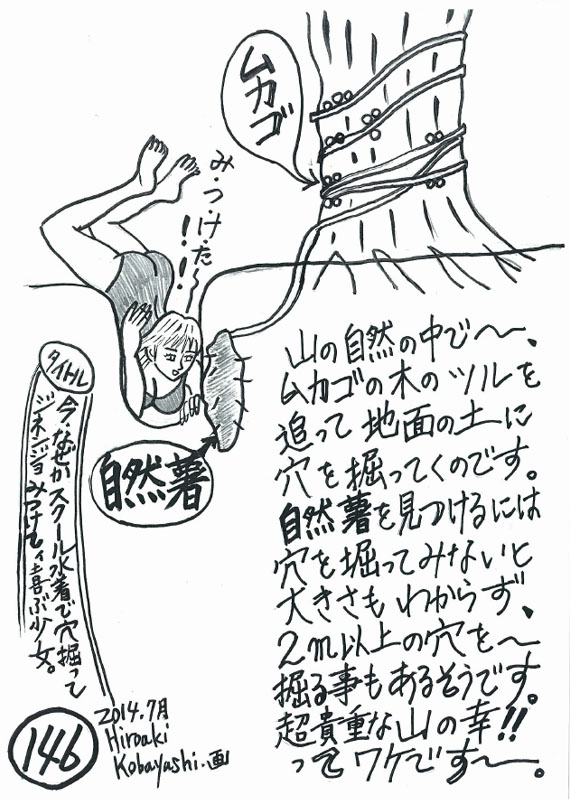 ムカゴ
み・つ・け・た〜!!
自然薯
山の自然の中で〜、
ムカゴの木のツルを
追って地面の土に
穴を掘ってくのです。
自然薯を見つけるには
穴を掘ってみないと
大きさもわからず、
2m以上の穴を〜
掘る事もあるそうです。
超貴重な山の幸!!
ってワケです〜。
タイトル
今・なぜかスクール水着で穴掘って
ジネンジョみつけて喜ぶ少女。
146
2014.7月
Hiroaki
Kobayashi.画